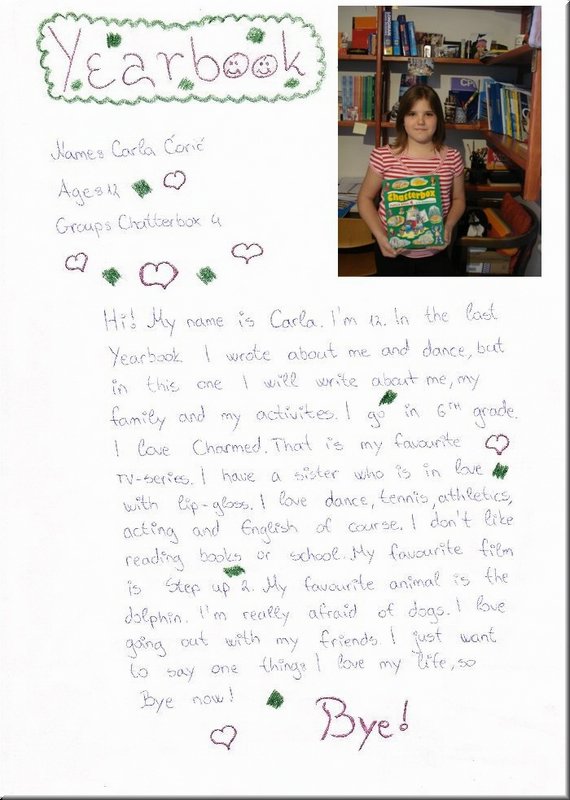 Yearbook
Name: Carla Čorić
Age: 12
Group: Chatterbox 4
Chatterbox
Hi! My name is Carla. I'm 12. In the last
Yearbook I wrote about me and dance, but
in this one I will write about me, my
family and my activites. I go in 6TH grade.
I love Charmed. That is my favourite
TV-series. I have a sister who is in love
with lip-gloss. I love dance, tennis, athletics,
acting and English of course. I don't like
reading books or school. My favourite film
is Step up 2. My favourite animal is the
dolphin. I'm really afraid of dogs. I love
going out with my friends. I just want
to say one thing: I love my life, so
Bye now!
Bye!